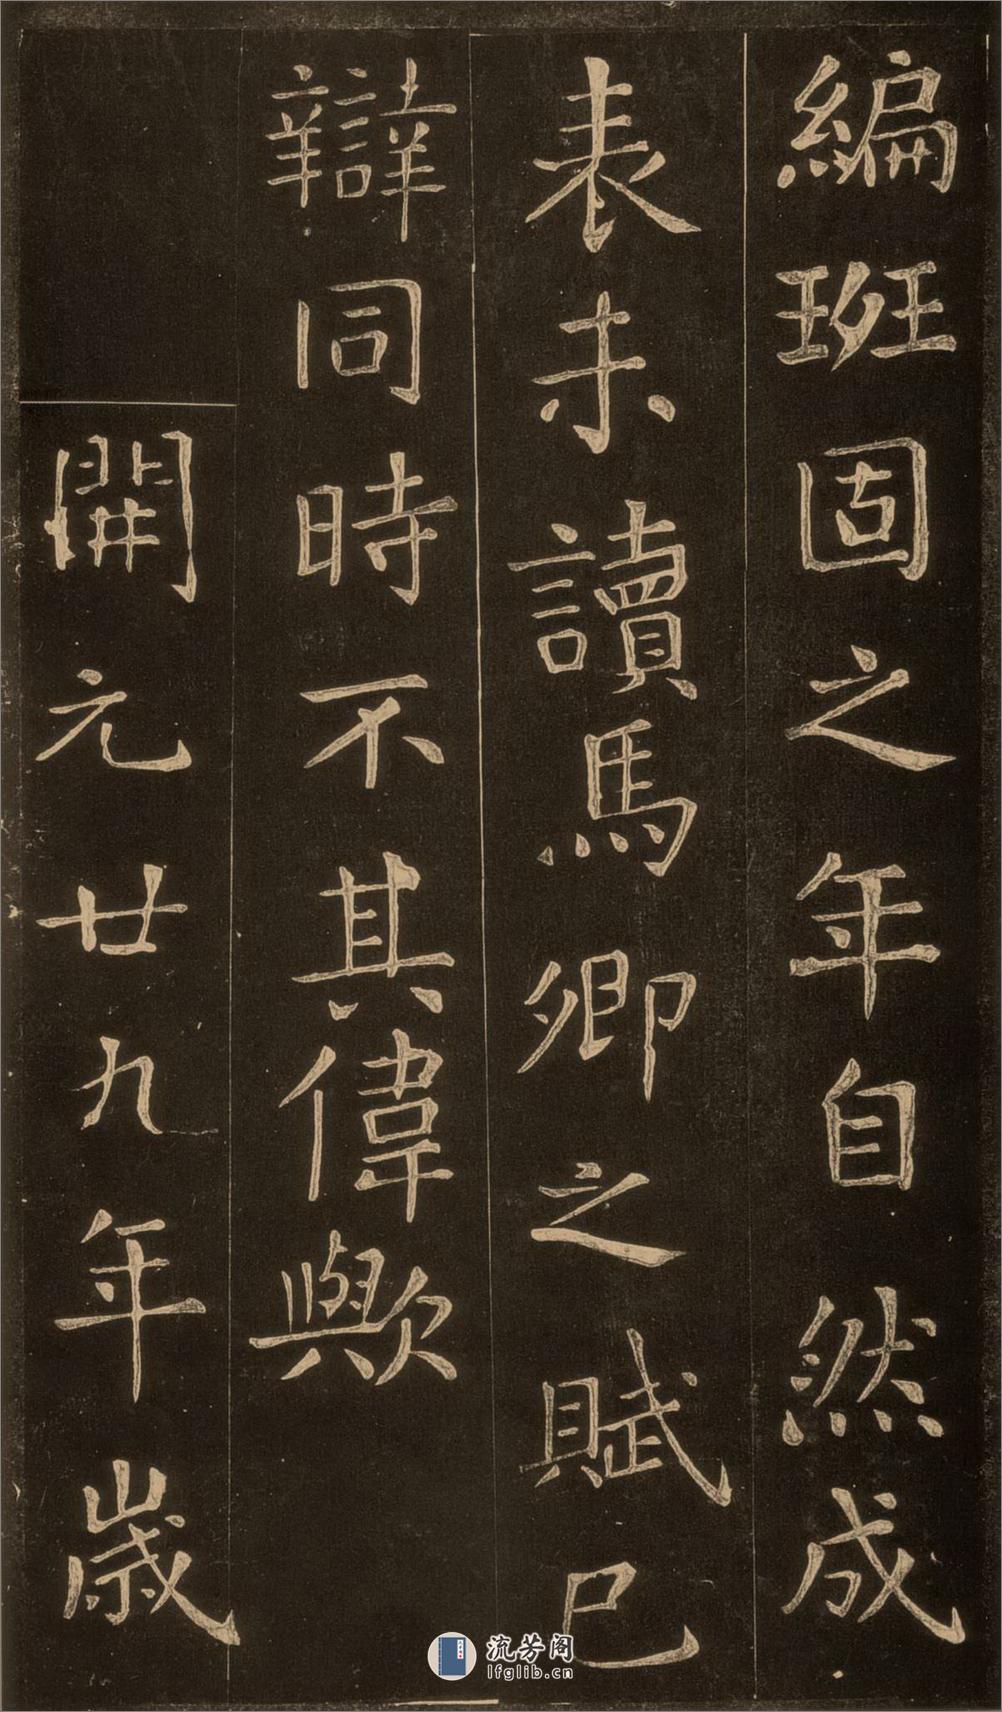 編班固之年自然成
表未讀馬卿之賦已
辯同時不其偉歟
開元廿九年歲
流芳阁
lfglib.cn